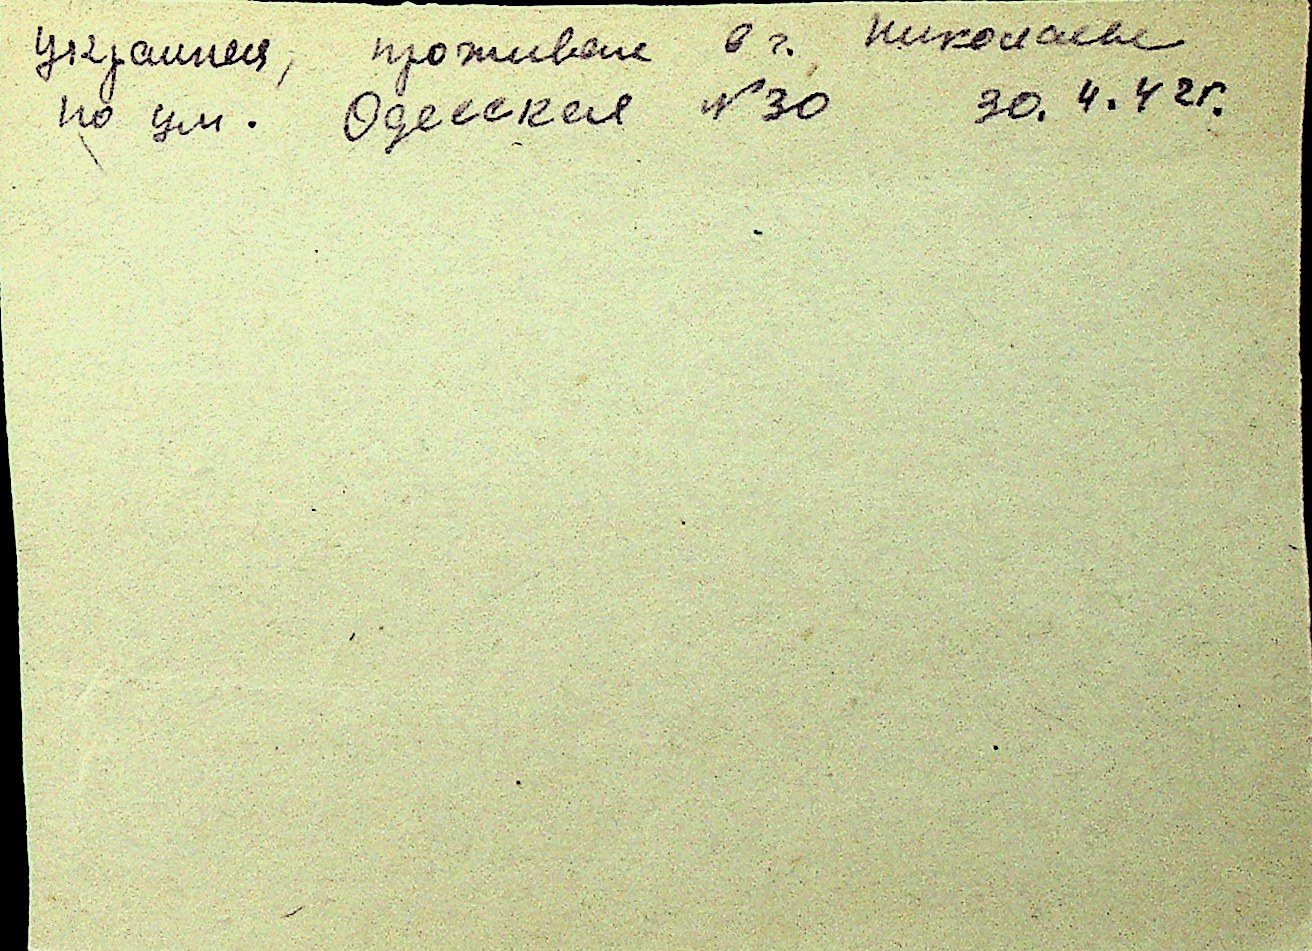 украинец, проживал в г. Николаеве
по ул. Одесская №30 30.4.42г.